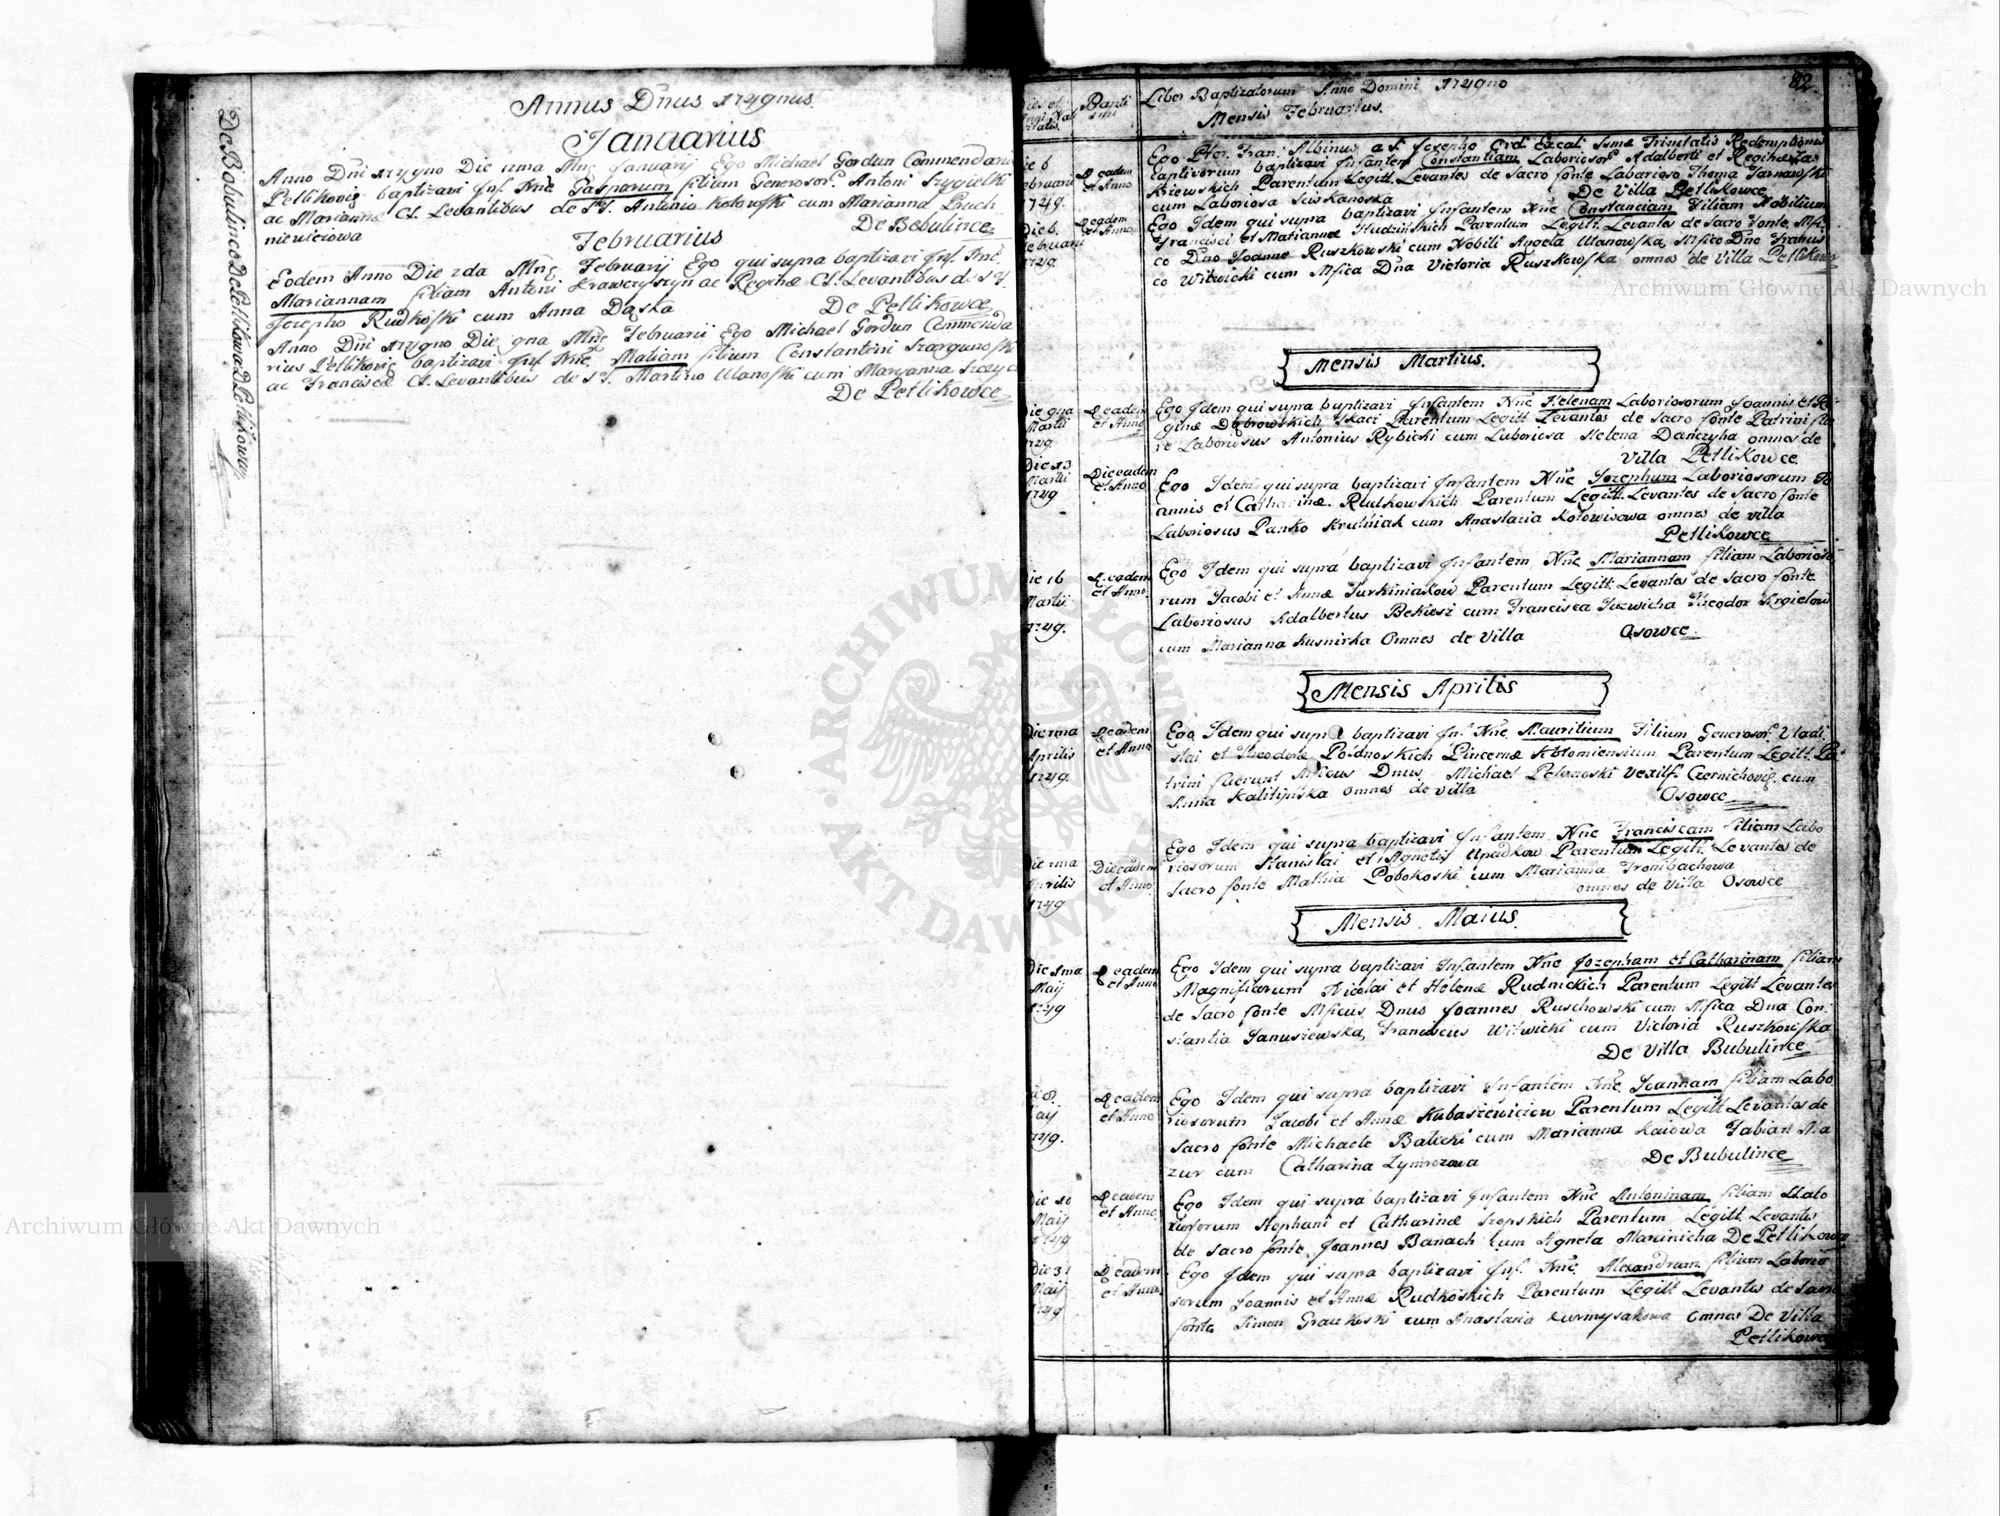 Annus Dnus 1749nus.
Januarius
Anno Dni 1749no Die 11ma Mnẽ Januarij Ego Michael Gordun Commendarius
Petlikoviẽ baptizavi Inf. Nnẽ Gasparum filium Generosor. Antoni Szygielski
ac Marianne Cl. Levantibus de S.F. Antonio Kotowski cum Marianna Pruch
niewiciowa De Bobulince
Februarius
Eodem Anno Die 2da Mnẽ Februarij Ego qui supra baptizavi Inf. Nnẽ
Mariannam filiam Antoni Krawczyszyn ac Reginæ Cl. Levantibus de S.F.
Josepho Rudkoski cum Anna Daska De Petlikowce
Anno Dni 1749no Die 9na Mnẽ Februarii Ego Michael Gordun Commenda
rius Petlikoviẽ baptizavi Inf. Nnẽ Matiam filium Constantini
ac Franciscæ Cl. Levantibus de S.F. Martino Ulanoski cum Maryanna
De Petlikowce
De Bobulince De Petlikowce De Petlikowcy
82.
Dies et Bapti Liber Baptizatorum Anno Domini 1749no
smi Mensis Februarius.
Die 6 Februarii 1749. Die eadem et Anno
Ego Pter. Fran: Albinus a S. Josepho Ord Excal: Ssmæ Trinitatis Redemptionis
captivorum baptizavi Infantem Constantiam Laboriosor. Adalberti et Reginæ
Kiewskich Parentum Legitt. Levantes de Sacro fonte Labarioso Thoma Tarnawski
cum Laboriosa Sciskanoska De Villa Petlikowce
Die 6. Februarii 1749. Die eadem et Anno
Ego Idem qui supra baptizavi Infantem Nnẽ Constanciam Filiam Nobilium
Francisci et Mariannæ Hudzinskich Parentum Legitt. Levantes de Sacro fonte. Mfi
co Dno Joanne Ruszkowski cum Nobili Angela Ulanowska, Mfico Dno Francis
co Witwicki cum Mfica Dna Victoria Ruszkowska omnes de Villa Petlikowce
Mensis Martius.
Die 9na Martii 1749 Die eadem et Anno
Ego Idem qui supra baptizavi Infantem Nnẽ Helenam Laboriosorum Joannis et Re
ginæ Dąbrowskich Tkaci Parentum Legitt Levantes de Sacro fonte Patrini fue
re Laboriosus Antonius Rybicki cum Laboriosa Helena Danczyha omnes de
Villa Petlikowce.
Die 13 Martii 1749 Die eadem et Anno
Ego Idem qui supra baptizavi Infantem Nnẽ Jozephum Laboriosorum Jo
annis et Catharinæ Rudkowskich Parentum Legitt. Levantes de Sacro fonte
Laboriosus Panko Krutniak cum Anastazia Kotowisowa omnes de villa
Petlikowce
Die 16 Martii 1749. Die eadem et Anno.
Ego Idem qui supra baptizavi Infantem Nnẽ Mariannam filiam Labarioso
rum Jacobi et Annæ Turkiniakow Parentum Legitt. Levantes de Sacro fonte
Laboriosus Adalbertus Bekiesz cum Francisca Theodor
cum Marianna Kusnirka Omnes de Villa Osowce.
Mensis Aprilis
Die 11ma Aprilis 1749. Die eadem et Anno
Ego Idem qui supra baptizavi Inf. Nnẽ Mauritium Filium Generosor. Vladi
slai et Theodoræ Pincernæ Kołomiensium Parentum Legitt. Pa
trini fuerunt Mficus Dnus Michael Vexilf. Czernichoviẽ cum
Anna Kalitynska omnes de villa Osowce
Die 11ma Aprilis 1749 Die eadem et Anno
Ego Idem qui supra baptizavi Infantem Nnẽ Franciscam filiam Labo
riosorum Stanislai et Agnetis Upadkow Parentum Legitt. Levantes de
Sacro fonte Mathia Pobokoski cum Marianna Trombachowa
omnes de Villa Osowce
Mensis Maius.
Die 1ma Maij 1749 Die eadem et Anno
Ego Idem qui supra baptizavi Infantem Nnẽ Jozepham et Catharinam filias
Magnificarum Nicolai et Helenæ Rudnickich Parentum Legitt Levantes
de Sacro fonte Mficus Dnus Joannes Ruschowski cum Mfica Dna Con:
stantia Janusiewska, Franciscus Witwicki cum Victoria Ruszkowska
De Villa Bubulince
8. Maij 1749. Die eadem et Anno
Ego Idem qui supra baptizavi Infantem Nnẽ Joannam filiam Labo
riosorum Jacobi et Annæ Kubasiewiciow Parentum Legitt Levantes de
Sacro fonte Michaele Batecki cum Marianna Kaiowa Fabian Ma
zur cum Catharina Tymrozowa De Bubulince
Die 10 Maij 1749 Die eadem et Anno
Ego Idem qui supra baptizavi Infantem Nnẽ Antoninam filiam Labo
riosorum Stephani et Catharinæ Szopskich Parentum Legitt Levantes
de Sacro fonte Joannes Banach cum Agneta Marcinicha De Petlikowce
Die 31 Maij 1749 Die eadem et Anno
Ego Idem qui supra baptizavi Inf. Nnẽ. Alexandrum filium Laborio
sorum Joannis et Annæ Rudkoskich Parentum Legitt Levantes de Sacro
fonte Simon Graukoski cum Anastazia Kurmysakowa omnes De Villa
Petlikowce
Archiwum Główne Akt Dawnych
Archiwum Główne Akt Dawnych
ARCHIWUM GŁÓWNE AKT DAWNYCH